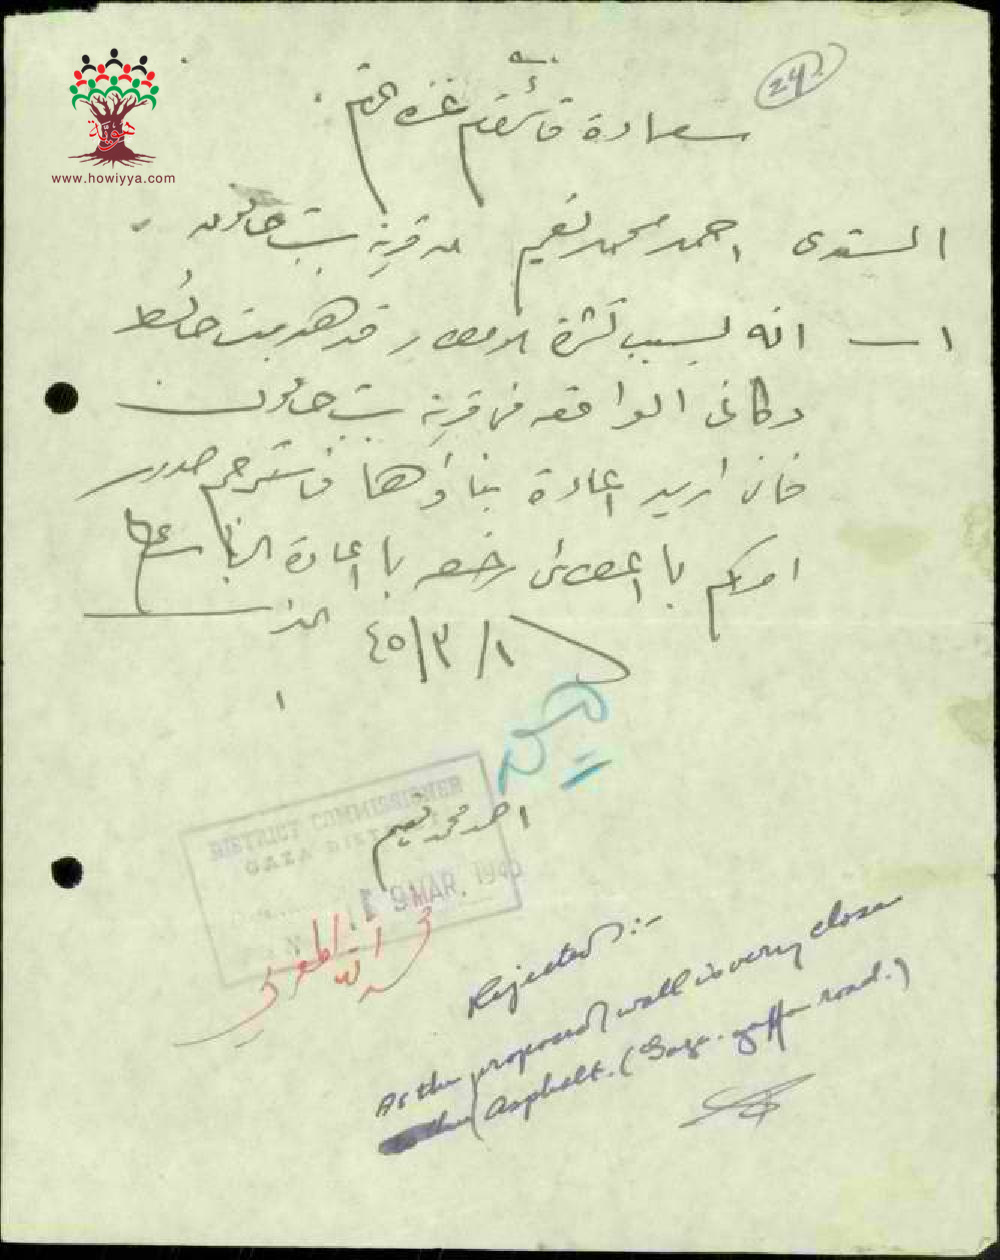 242
هوية
www.howiyya.com
سعادة قائمقام غزه المحترم
المستدعي احمد محمد نعيم من قرية بيت حانون
١ــ انه بسبب كثرة الامطار قد هدمت حائط
دكاني الواقعه في قرية بيت حانون
فاني اريد اعادة بناؤها فاسترحم صدور
امركم باعطائي رخصه باعادة البناء
٤٥/٣/١
احمد محمد نعيم
DISTRICT COMMISSIONER
GAZA DISTRICT
19 MAR. 194
Rejected:-
As the proposed wall is very close
to the asphalt. (Gaza-Jaffa road.)